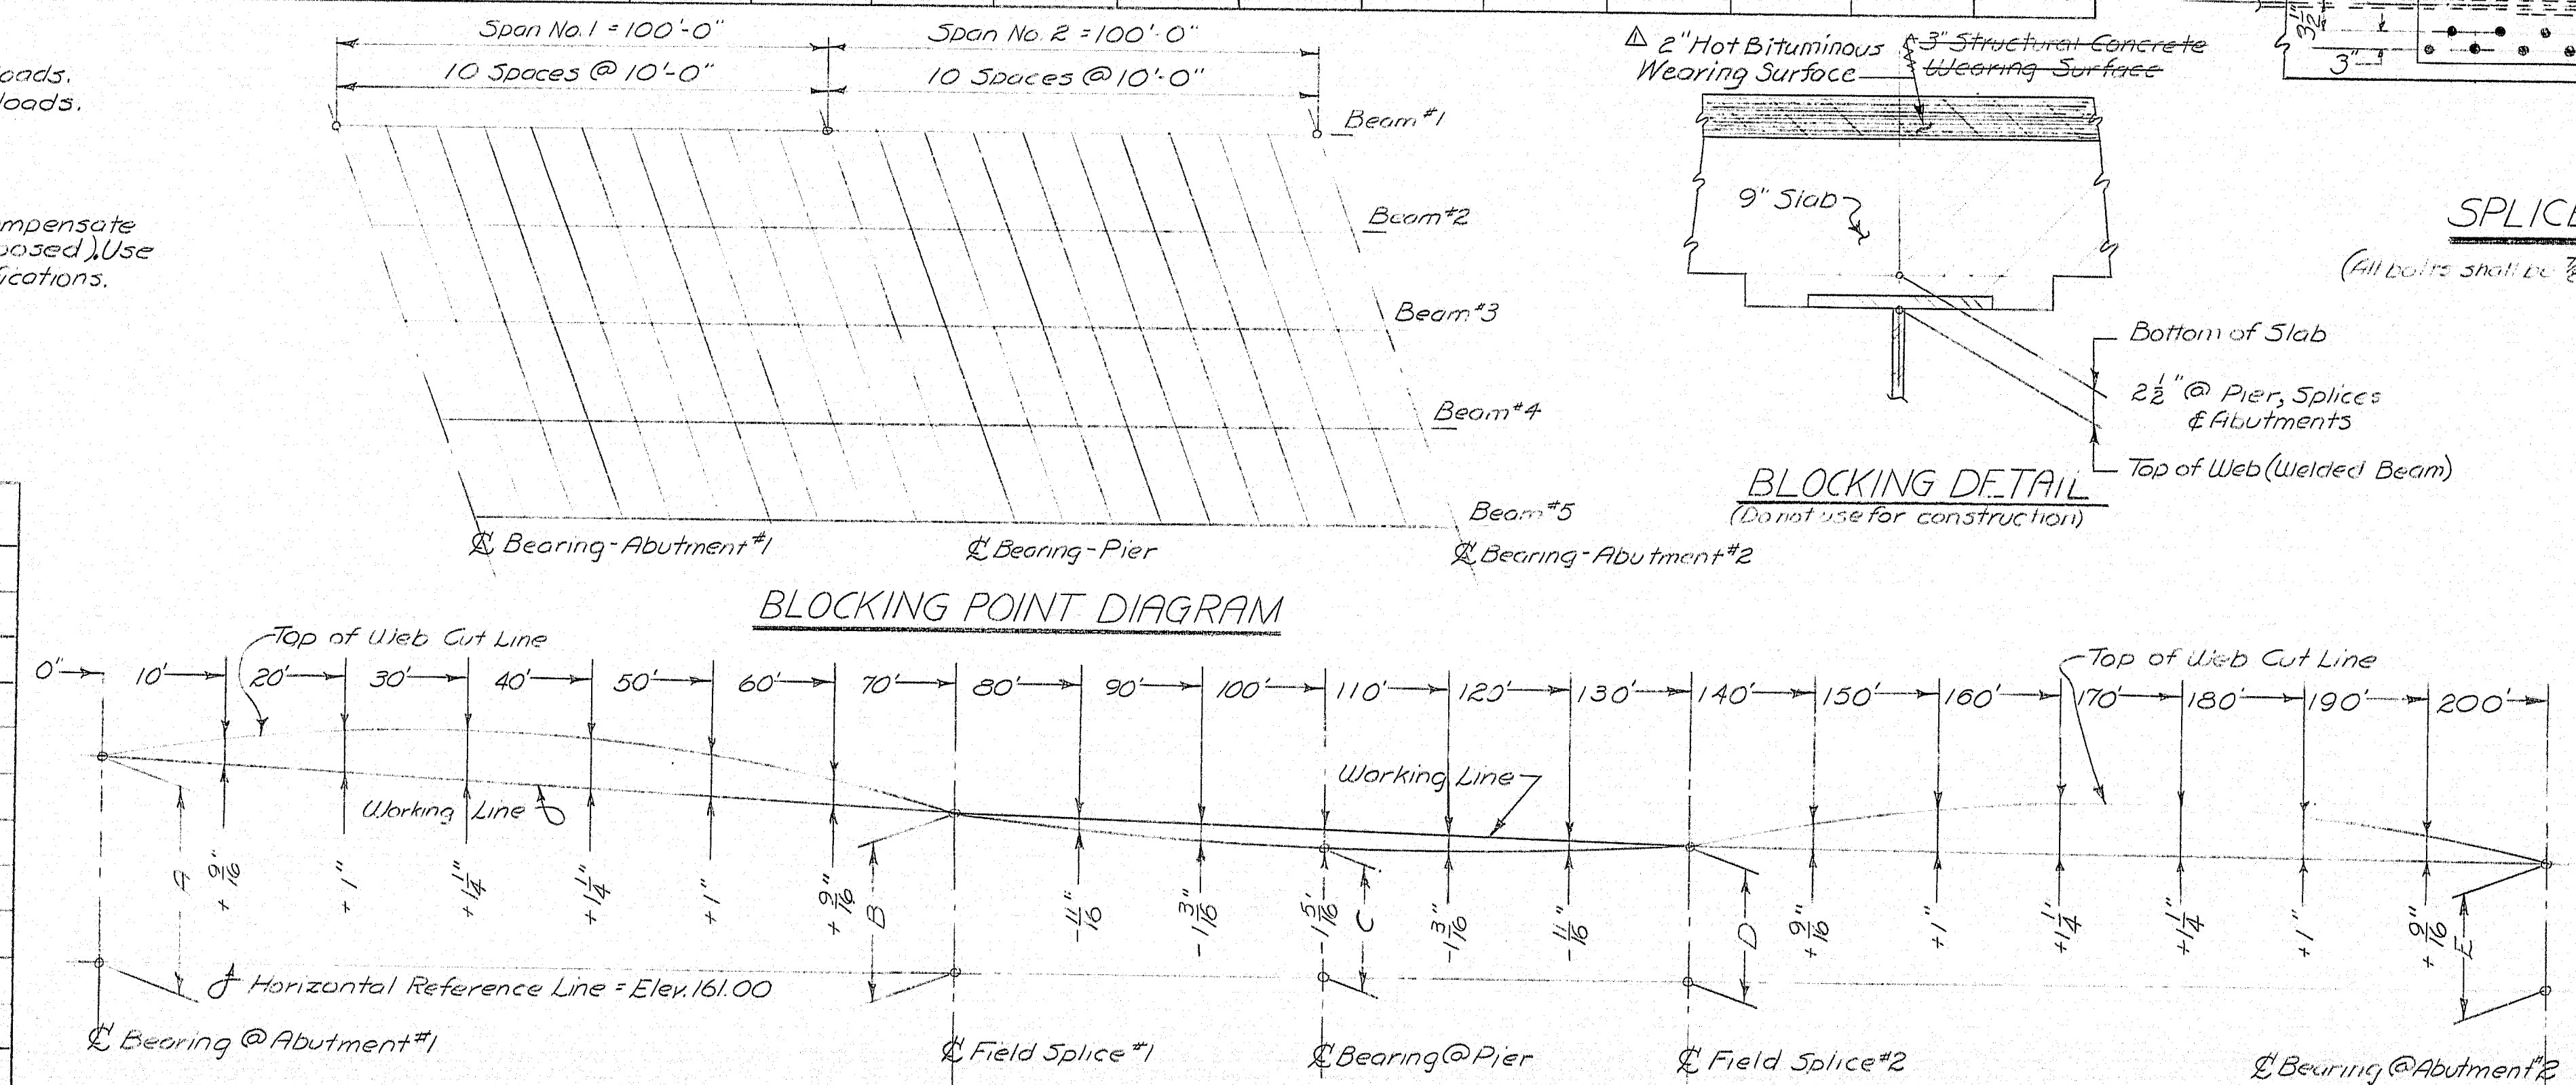 Span No. 1 = 100'-0"
Span No. 2 = 100'-0"
10 Spaces @ 10'-0"
10 Spaces @ 10'-0"
oads.
loads.
mpensate
posed). Use
fications.
Beam #1
Beam #2
Beam #3
Beam #4
Beam #5
℄ Bearing-Abutment #1
℄ Bearing-Pier
℄ Bearing-Abutment #2
BLOCKING POINT DIAGRAM
⚠ 2" Hot Bituminous
Wearing Surface
3" Structural Concrete
Wearing Surface
9" Slab
Bottom of Slab
2 1/2" @ Pier, Splices
& Abutments
Top of Web (Welded Beam)
BLOCKING DETAIL
(Do not use for construction)
3 1/2"
3"
SPLICE
(All bolts shall be 7/8
Top of Web Cut Line
Top of Web Cut Line
0" 10' 20' 30' 40' 50' 60' 70' 80' 90' 100' 110' 120' 130' 140' 150' 160' 170' 180' 190' 200'
Working Line
Working Line
A +9/16" +1" +1 1/4" +1 1/4" +1" +9/16" B -11/16" -1 3/16" -1 5/16' C -1 3/16" -11/16" D +9/16" +1" +1 1/4" +1 1/4" +1" +9/16" E
Horizontal Reference Line = Elev. 161.00
℄ Bearing @ Abutment #1
℄ Field Splice #1
℄ Bearing @ Pier
℄ Field Splice #2
℄ Bearing @ Abutment #2